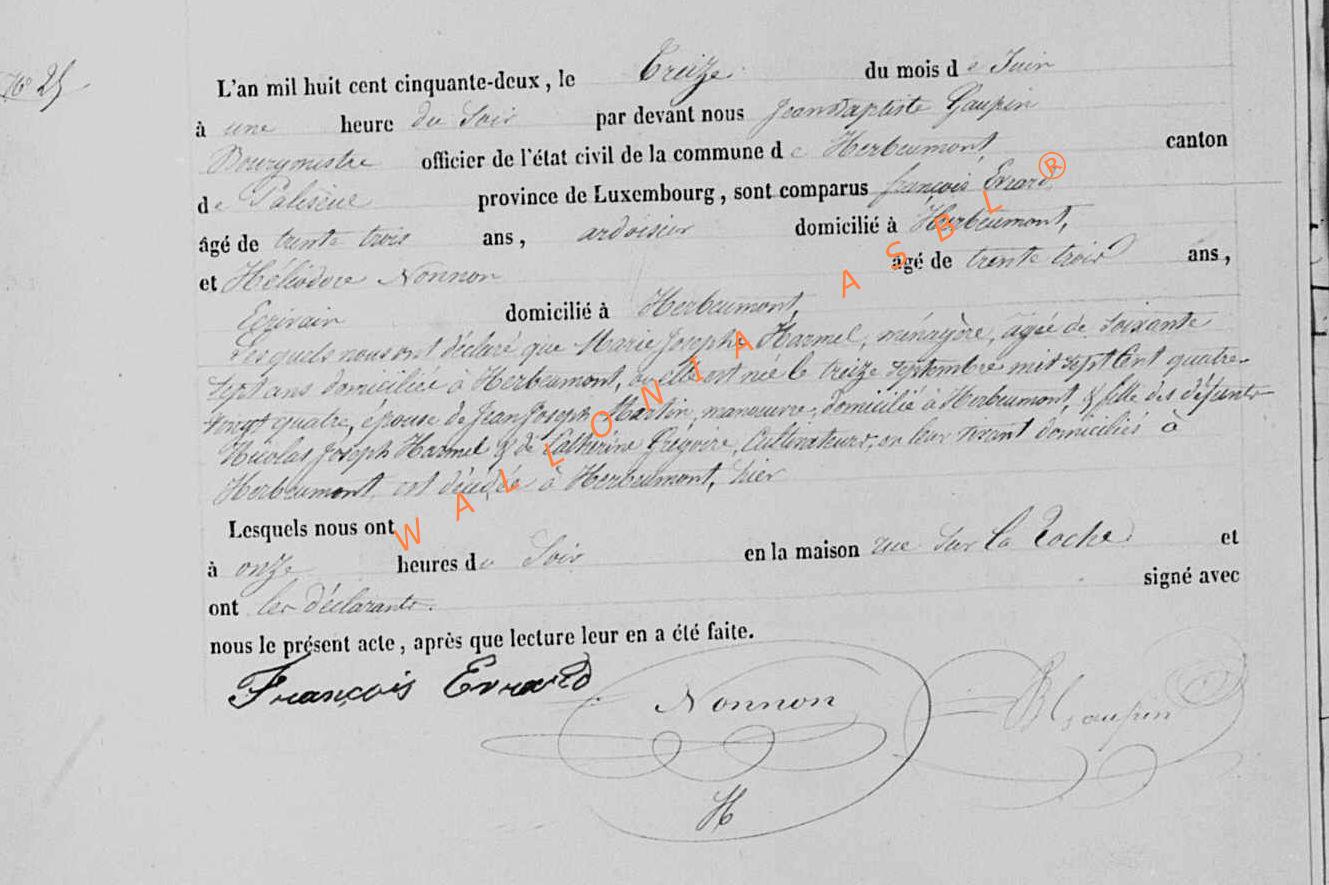 N° 25
L'an mil huit cent cinquante-deux, le Treize du mois de Juin
à une heure du Soir par devant nous Jean Baptiste Gaupin
Bourgmestre officier de l'état civil de la commune de Herbeumont, canton
de Paliseul province de Luxembourg, sont comparus françois Evrard
âgé de trente trois ans, ardoisier domicilié à Herbeumont,
et Héliodore Nonnon âgé de trente trois ans,
Ecrivain domicilié à Herbeumont,
Lesquels nous ont déclaré que Marie Josephe Harmel, ménagère, âgée de soixante
sept ans domiciliée à Herbeumont, où elle est née le treize septembre mil sept Cent quatre-
vingt quatre, épouse de Jean Joseph Martin, manœuvre, domicilié à Herbeumont, & fille des défunts
Nicolas Joseph Harmel & de Catherine Grégoire, Cultivateurs, en leur vivant domiciliés à
Herbeumont, est décédée à Herbeumont, hier
Lesquels nous ont
à onze heures du Soir en la maison rue Sur la Roche et
ont les déclarants. signé avec
nous le présent acte, après que lecture leur en a été faite.
François Evrard
Nonnon
JB Gaupin
H
WALLONIA ASBL ®